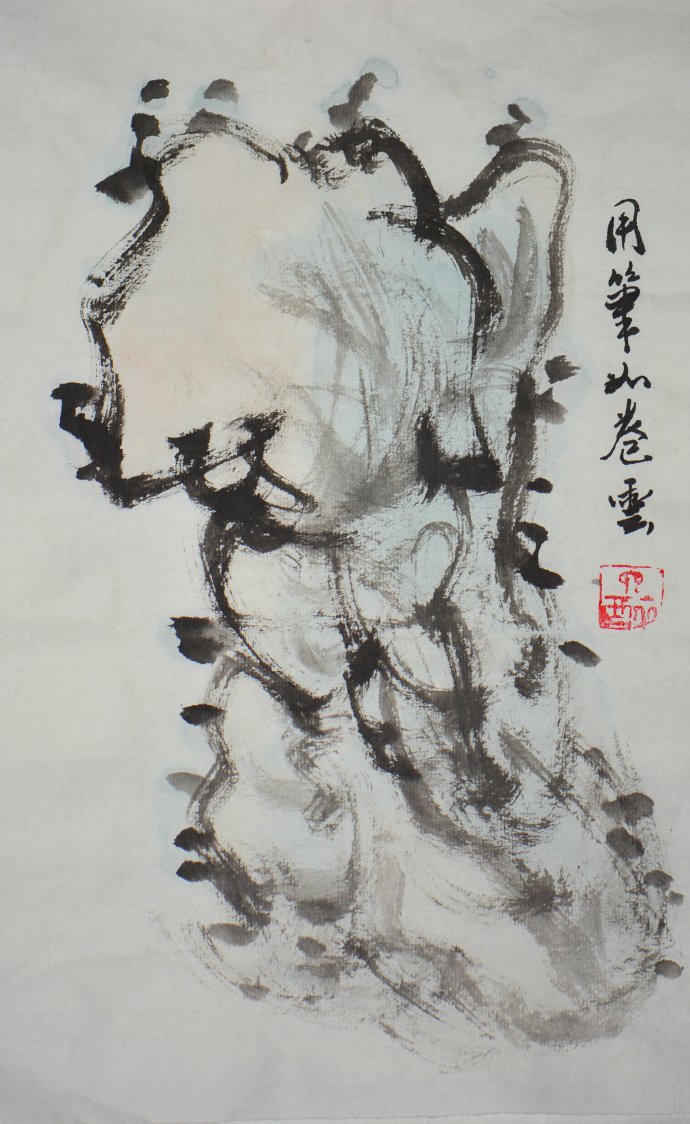 用筆如卷雲